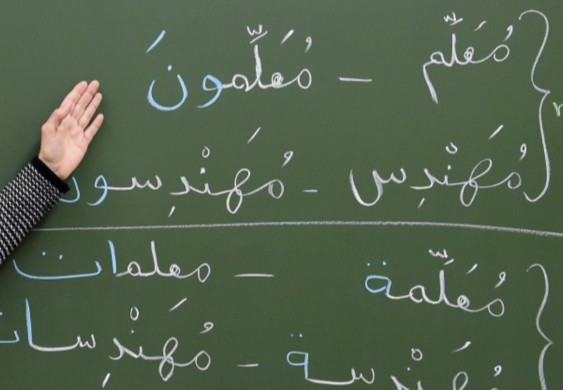 مُعَلِّم – مُعَلِّمُونَ
مُهَنْدِس – مُهَنْدِسون
مُعَلِّمة – معلمات
مُهَنْدِسة – مُهَنْدِسات